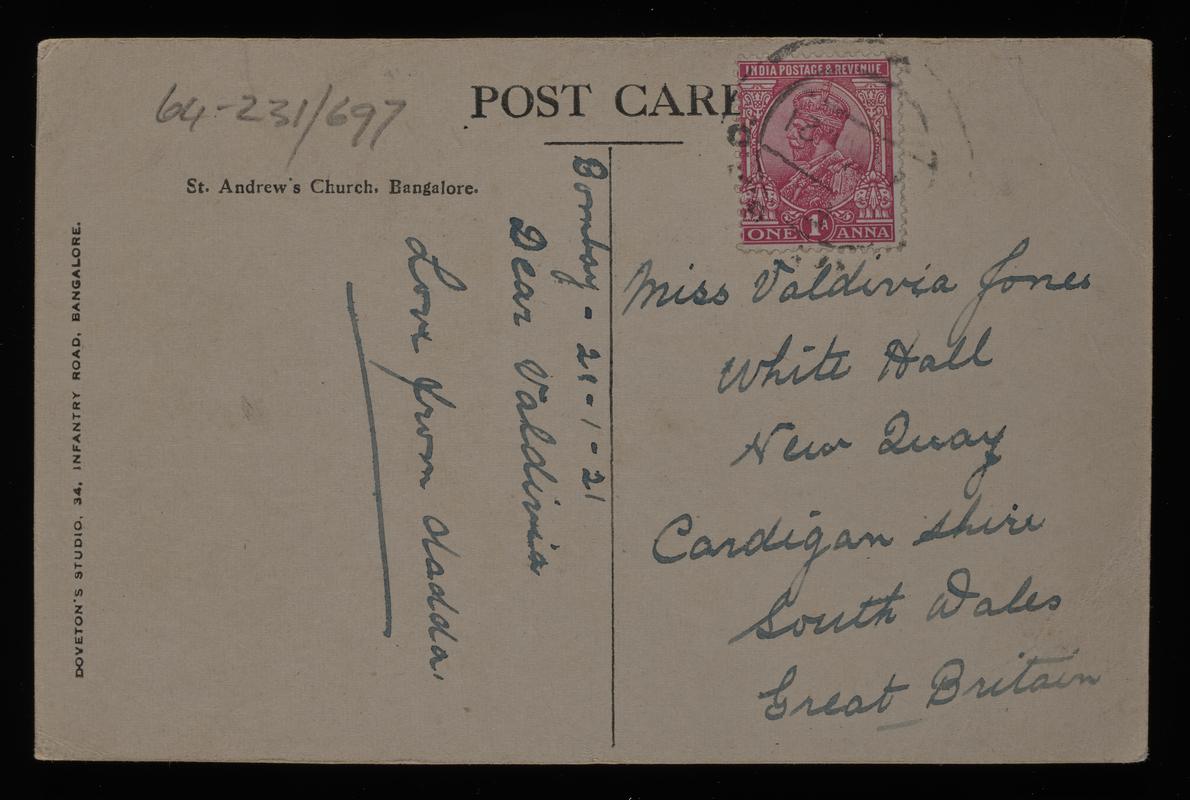 64-231/697
POST CARD
INDIA POSTAGE & REVENUE
ONE 1A ANNA
St. Andrew's Church, Bangalore.
DOVETON'S STUDIO, 34, INFANTRY ROAD, BANGALORE.
Bombay - 21-1-21
Dear Valdivia
Love from dadda.
Miss Valdivia Jones
White Hall
New Quay
Cardigan shire
South Wales
Great Britain